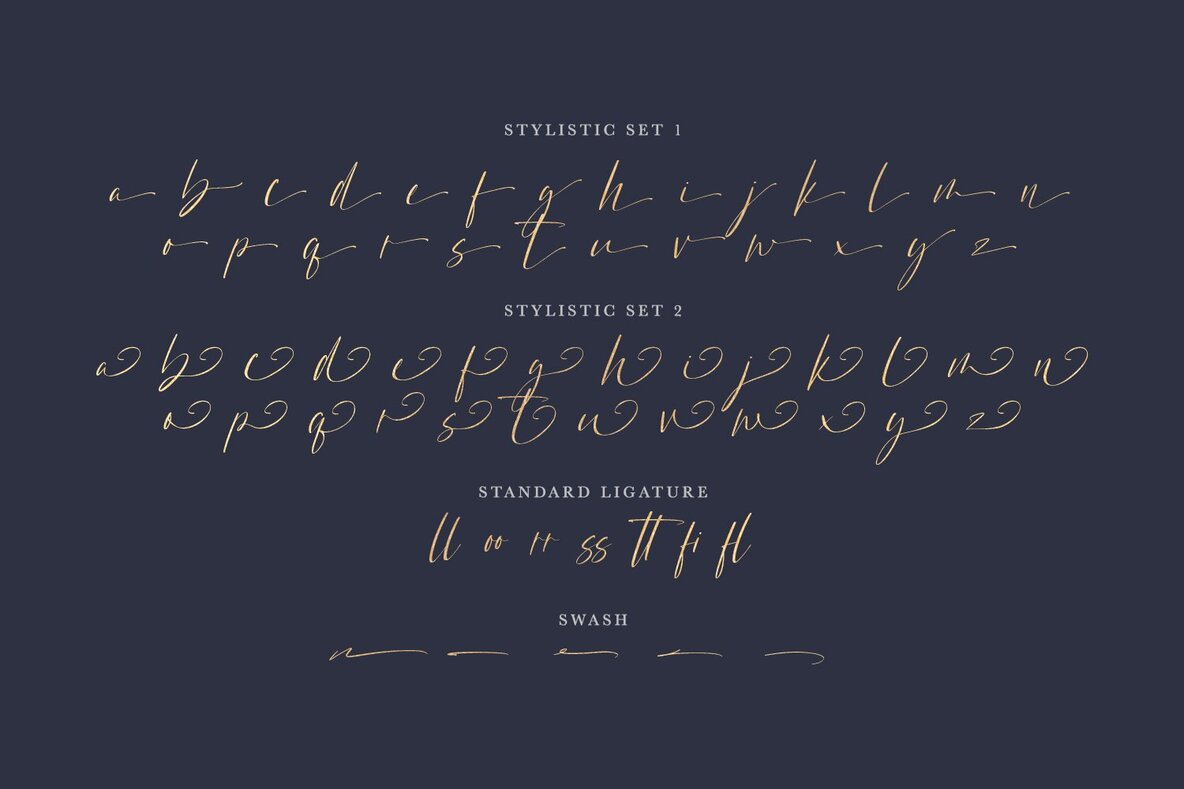 STYLISTIC SET 1
a b c d e f g h i j k l m n
o p q r s t u v w x y z
STYLISTIC SET 2
a b c d e f g h i j k l m n
o p q r s t u v w x y z
STANDARD LIGATURE
ll oo rr ss tt fi fl
SWASH